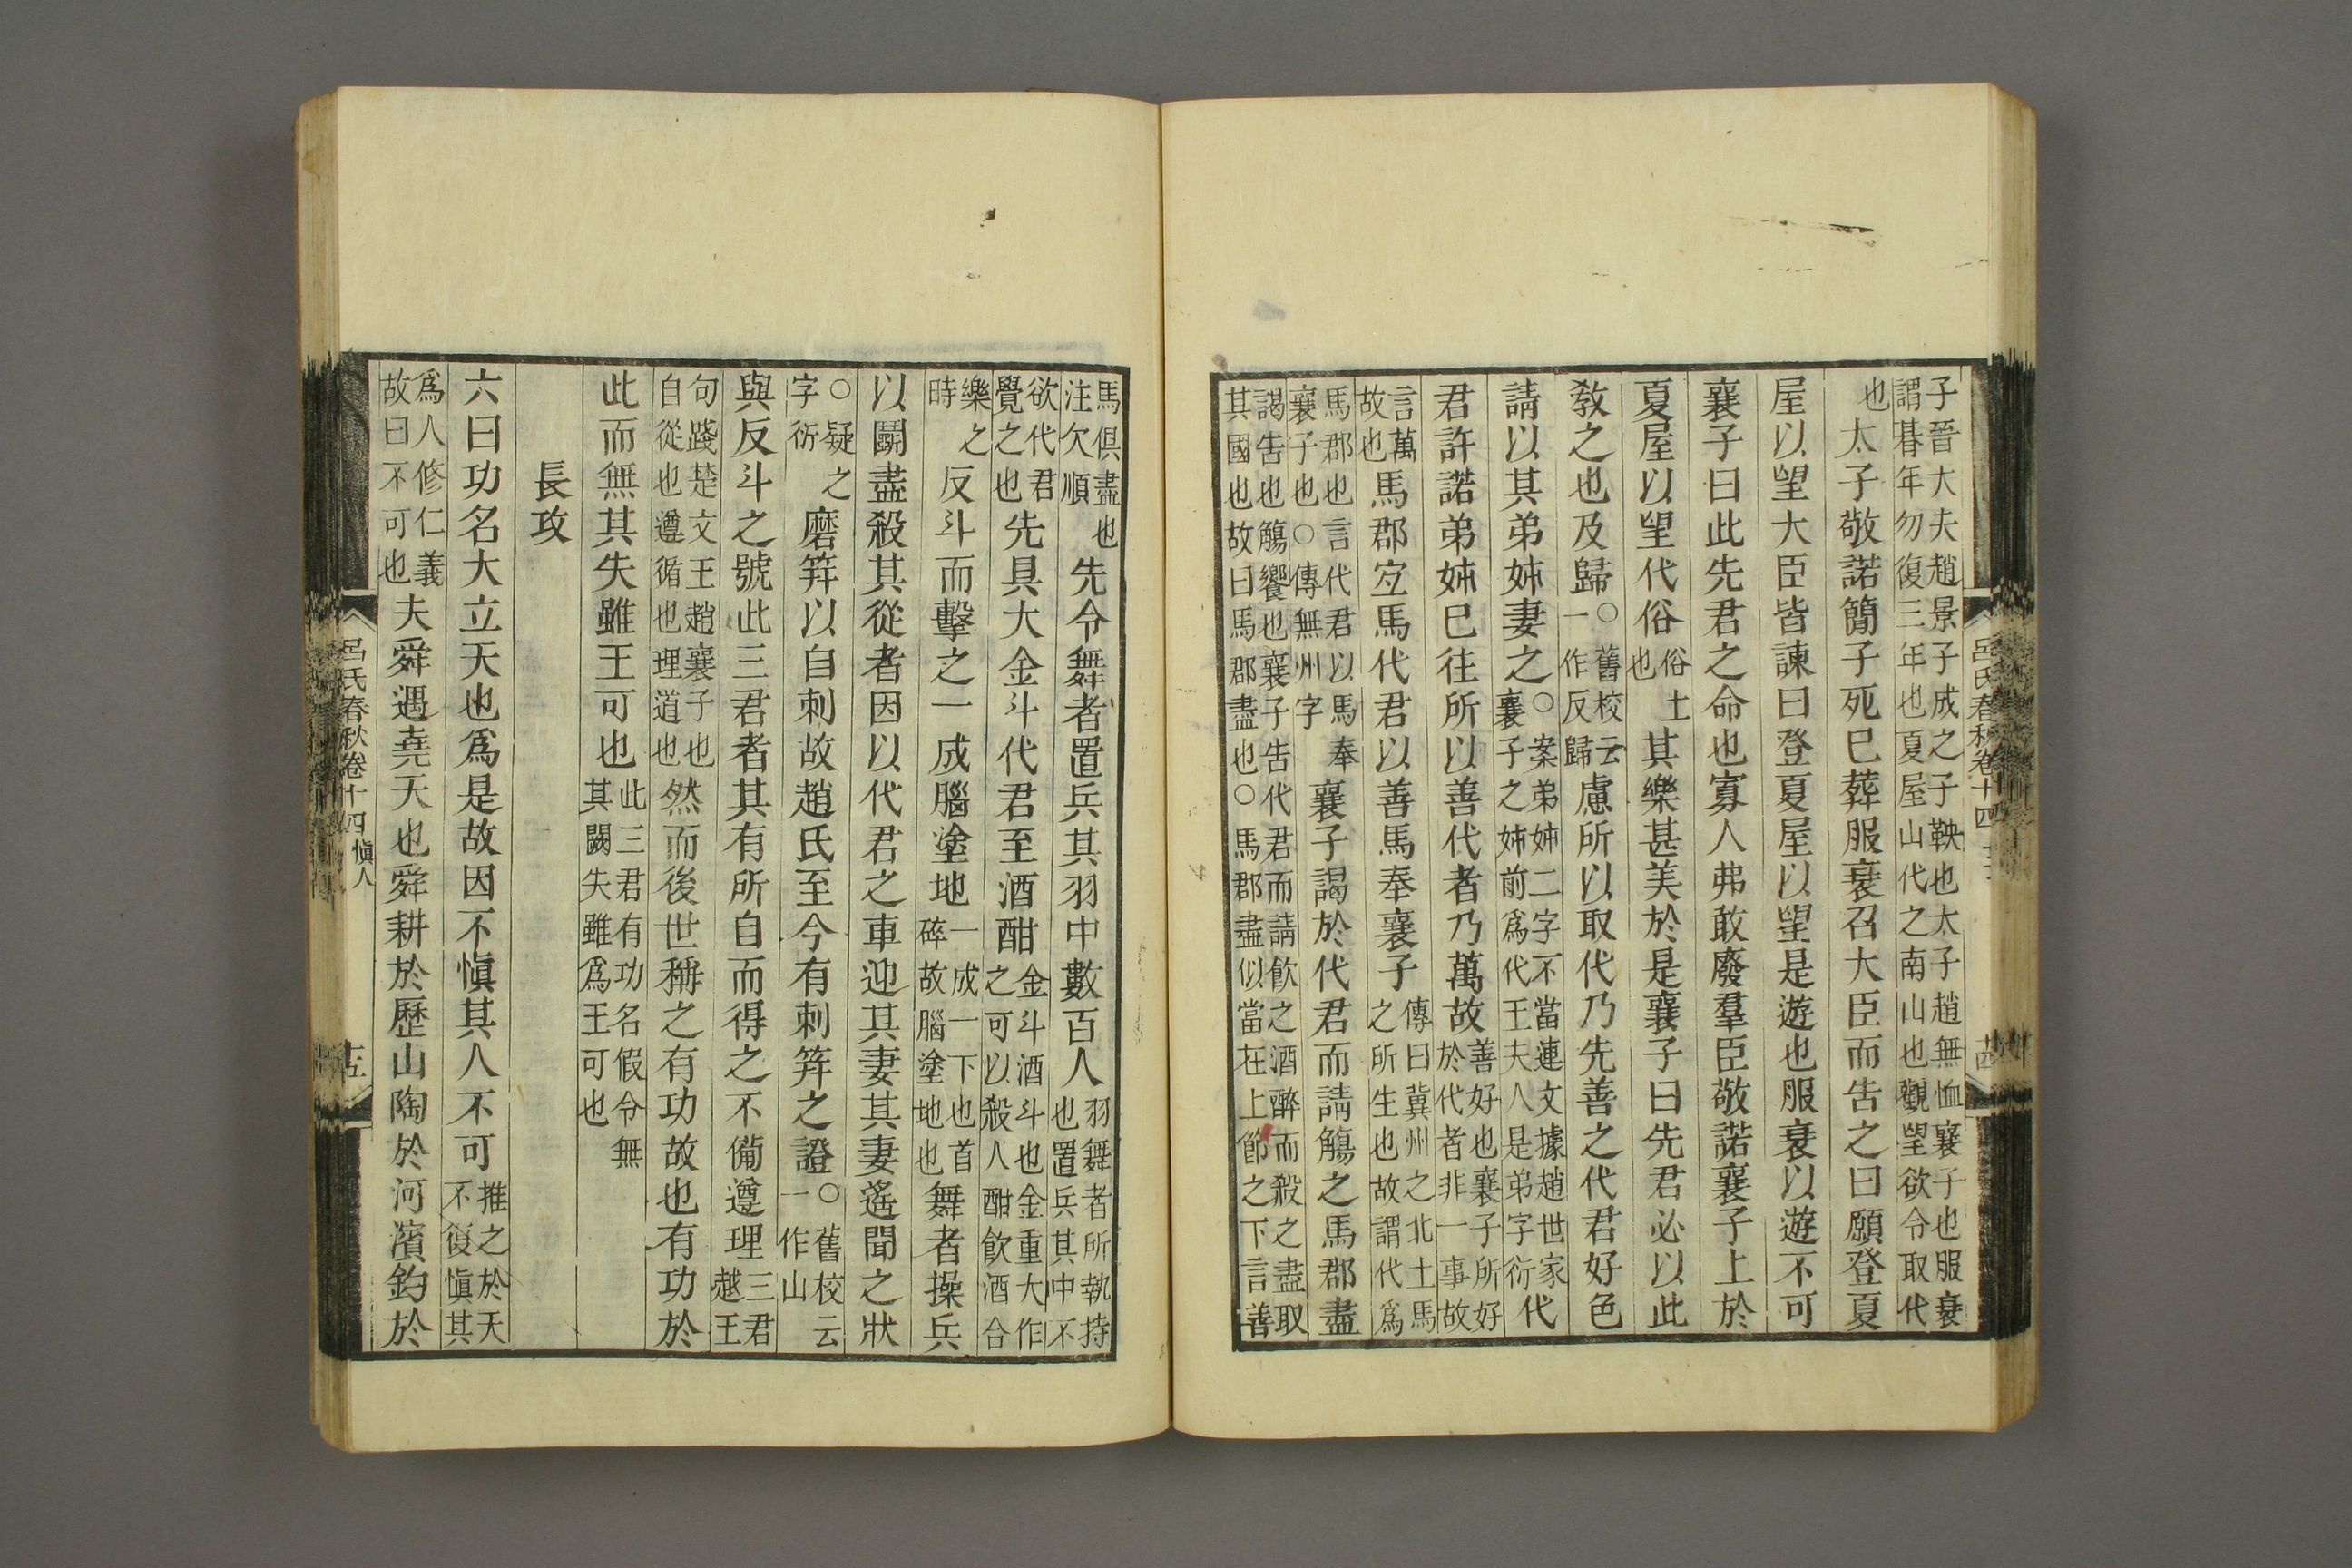 子晉大夫趙景子成之子鞅也太子趙無恤襄子也服衰
謂朞年勿復三年也夏屋山代之南山也觀望欲令取代
也太子敬諾簡子死巳葬服衰召大臣而告之曰願登夏
屋以望大臣皆諫曰登夏屋以望是遊也服衰以遊不可
襄子曰此先君之命也寡人弗敢廢羣臣敬諾襄子上於
夏屋以望代俗俗土也其樂甚美於是襄子曰先君必以此
敎之也及歸○舊校云一作反歸慮所以取代乃先善之代君好色
請以其弟姊妻之○案弟姊二字不當連文據趙世家襄子之姊前爲代王夫人是弟字衍代
君許諾弟姊巳往所以善代者乃萬故善好也襄子所好於代者非一事故
言萬故也馬郡宐馬代君以善馬奉襄子傳曰冀州之北土馬之所生也故謂代爲
馬郡也言代君以馬奉襄子也○傳無州字襄子謁於代君而請觴之馬郡盡
謁告也觴饗也襄子告代君而請飮之酒醉而殺之盡取
其國也故曰馬郡盡也○馬郡盡似當在上節之下言善
呂氏春秋卷十四
馬俱盡也注欠順先令舞者置兵其羽中數百人羽舞者所執持也置兵其中不
欲代君覺之也先具大金斗代君至酒酣金斗酒斗也金重大作之可以殺人酣飮酒合
樂之時反斗而擊之一成腦塗地一成一下也首碎故腦塗地也舞者操兵
以鬭盡殺其從者因以代君之車迎其妻其妻遙聞之狀
○疑之字衍磨笄以自刺故趙氏至今有刺笄之證○舊校云一作山
與反斗之號此三君者其有所自而得之不備遵理三君越王
句踐楚文王趙襄子也自從也遵循也理道也然而後世稱之有功故也有功於
此而無其失雖王可也此三君有功名假令無其闕失雖爲王可也
長攻
六曰功名大立天也爲是故因不愼其人不可推之於天不復愼其
爲人修仁義故曰不可也夫舜遇堯天也舜耕於歷山陶於河濱釣於
呂氏春秋卷十四 愼人